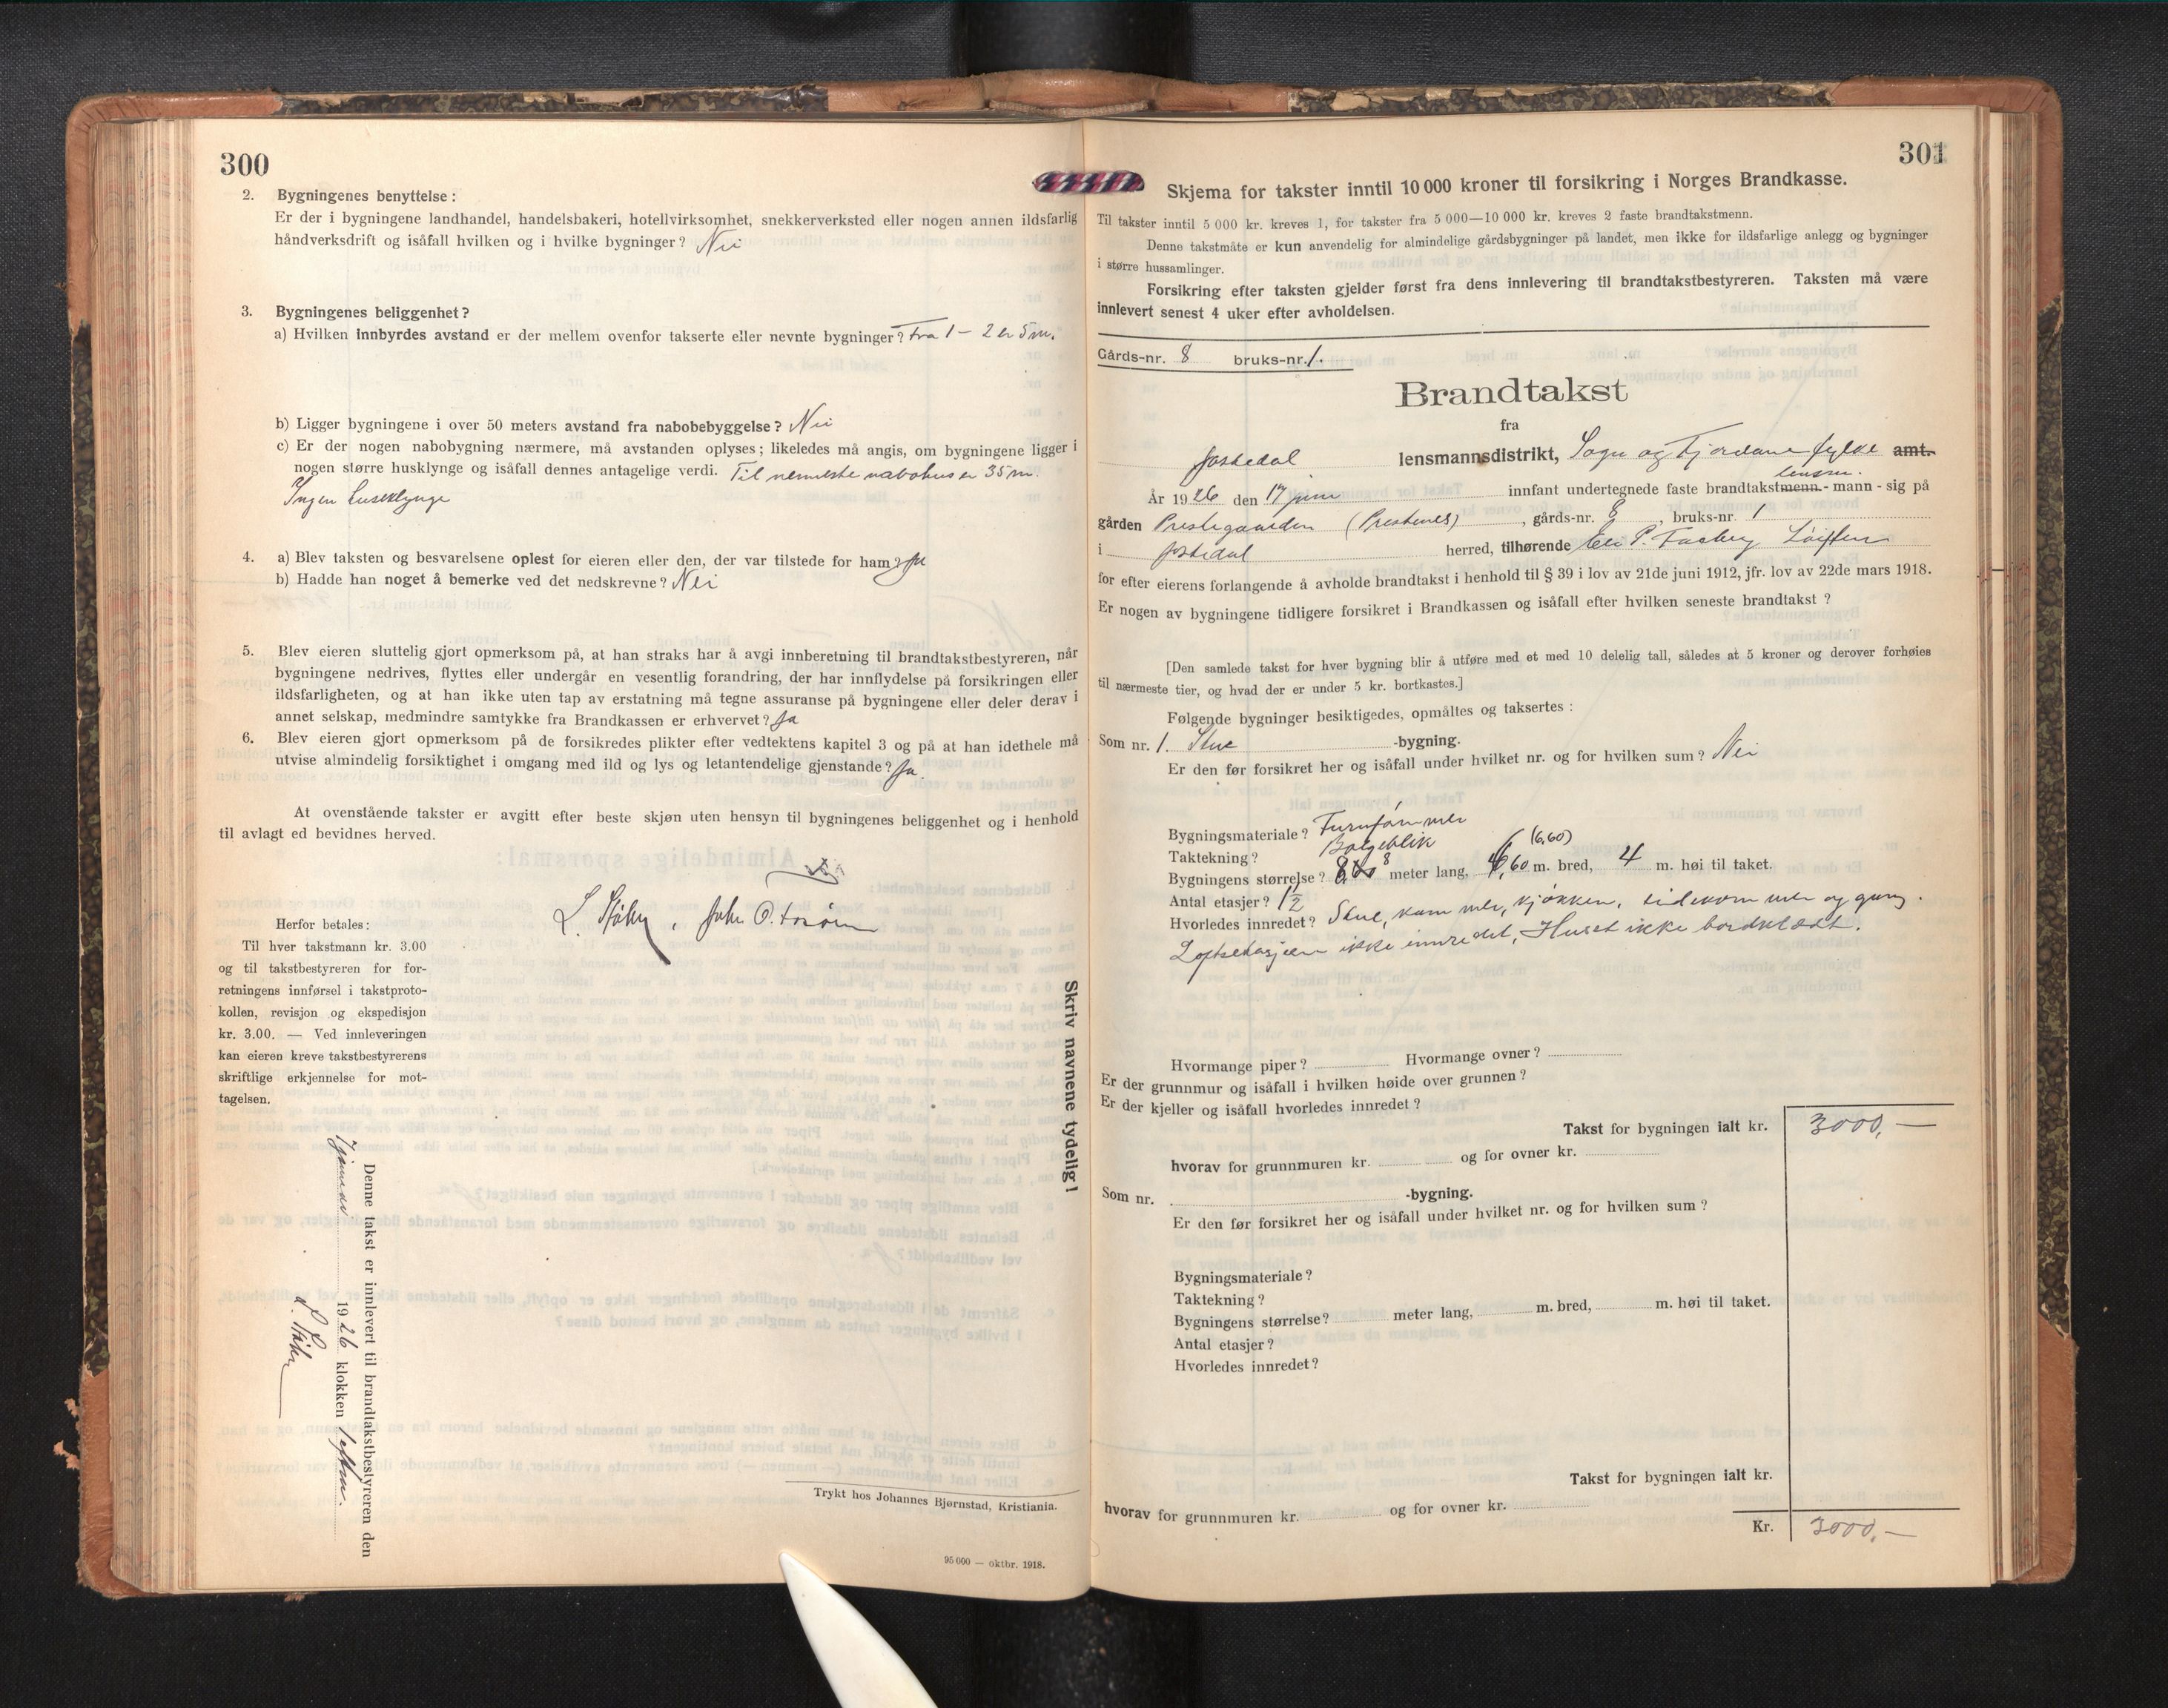 300
2. Bygningenes benyttelse :
Er der i bygningene landhandel, handelsbakeri, hotellvirksomhet, snekkerverksted eller nogen annen ildsfarlig
håndverksdrift og isåfall hvilken og i hvilke bygninger ? Nei
3. Bygningenes beliggenhet ?
a) Hvilken innbyrdes avstand er der mellem ovenfor takserte eller nevnte bygninger ? Fra 1 - 2 er 5 m.
b) Ligger bygningene i over 50 meters avstand fra nabobebyggelse ? Nei
c) Er der nogen nabobygning nærmere, må avstanden oplyses ; likeledes må angis, om bygningene ligger i
nogen større husklynge og isåfall dennes antagelige verdi. Til nermeste nabohus er 35 m.
Ingen husklynge
4. a) Blev taksten og besvarelsene oplest for eieren eller den, der var tilstede for ham ? Ja
b) Hadde han noget å bemerke ved det nedskrevne ? Nei
5. Blev eieren sluttelig gjort opmerksom på, at han straks har å avgi innberetning til brandtakstbestyreren, når
bygningene nedrives, flyttes eller undergår en vesentlig forandring, der har innflydelse på forsikringen eller
ildsfarligheten, og at han ikke uten tap av erstatning må tegne assuranse på bygningene eller deler derav i
annet selskap, medmindre samtykke fra Brandkassen er erhvervet ? Ja
6. Blev eieren gjort opmerksom på de forsikredes plikter efter vedtektens kapitel 3 og på at han idethele må
utvise almindelig forsiktighet i omgang med ild og lys og letantendelige gjenstande ? Ja.
At ovenstående takster er avgitt efter beste skjøn uten hensyn til bygningenes beliggenhet og i henhold
til avlagt ed bevidnes herved.
Herfor betales :
Til hver takstmann kr. 3.00
og til takstbestyreren for for-
retningens innførsel i takstproto-
kollen, revisjon og ekspedisjon
kr. 3.00. — Ved innleveringen
kan eieren kreve takstbestyrerens
skriftlige erkjennelse for mot-
tagelsen.
Skriv navnene tydelig !
Denne takst er innlevert til brandtakstbestyreren den
1926 klokken
Trykt hos Johannes Bjørnstad, Kristiania.
95 000 — oktbr. 1918.
301
Skjema for takster inntil 10 000 kroner til forsikring i Norges Brandkasse.
Til takster inntil 5 000 kr. kreves 1, for takster fra 5 000—10 000 kr. kreves 2 faste brandtakstmenn.
Denne takstmåte er kun anvendelig for almindelige gårdsbygninger på landet, men ikke for ildsfarlige anlegg og bygninger
i større hussamlinger.
Forsikring efter taksten gjelder først fra dens innlevering til brandtakstbestyreren. Taksten må være
innlevert senest 4 uker efter avholdelsen.
Gårds-nr. 8 bruks-nr. 1.
Brandtakst
fra
Jostedal lensmannsdistrikt, Sogn og Fjordane fylke amt.
lensm.
År 1926 den 17 juni innfant undertegnede faste brandtakstmenn - mann - sig på
gården Prestegaarden (Prestenes), gårds-nr. 8, bruks-nr. 1
i Jostedal herred, tilhørende P.
for efter eierens forlangende å avholde brandtakst i henhold til § 39 i lov av 21de juni 1912, jfr. lov av 22de mars 1918.
Er nogen av bygningene tidligere forsikret i Brandkassen og isåfall efter hvilken seneste brandtakst ?
[Den samlede takst for hver bygning blir å utføre med et med 10 delelig tall, således at 5 kroner og derover forhøies
til nærmeste tier, og hvad der er under 5 kr. bortkastes.]
Følgende bygninger besiktigedes, opmåltes og taksertes :
Som nr. 1. Stue -bygning.
Er den før forsikret her og isåfall under hvilket nr. og for hvilken sum ? Nei
Bygningsmateriale ? Furutømmer
Taktekning ? Bølgeblik
(6,60)
Bygningens størrelse ? 8 meter lang, 6,60 m. bred, 4 m. høi til taket.
Antal etasjer ? 1½
Hvorledes innredet ? Stue, kammer, kjøkken, sidekammer og gang.
Loftsetasjen ikke innredet, Huset ikke bordklædt.
Hvormange piper ? Hvormange ovner ?
Er der grunnmur og isåfall i hvilken høide over grunnen ?
Er der kjeller og isåfall hvorledes innredet ?
Takst for bygningen ialt kr. 3000,—
hvorav for grunnmuren kr. og for ovner kr.
Som nr. -bygning.
Er den før forsikret her og isåfall under hvilket nr. og for hvilken sum ?
Bygningsmateriale ?
Taktekning ?
Bygningens størrelse ? meter lang, m. bred, m. høi til taket.
Antal etasjer ?
Hvorledes innredet ?
Takst for bygningen ialt kr.
hvorav for grunnmuren kr. og for ovner kr.
Kr. 3000,—